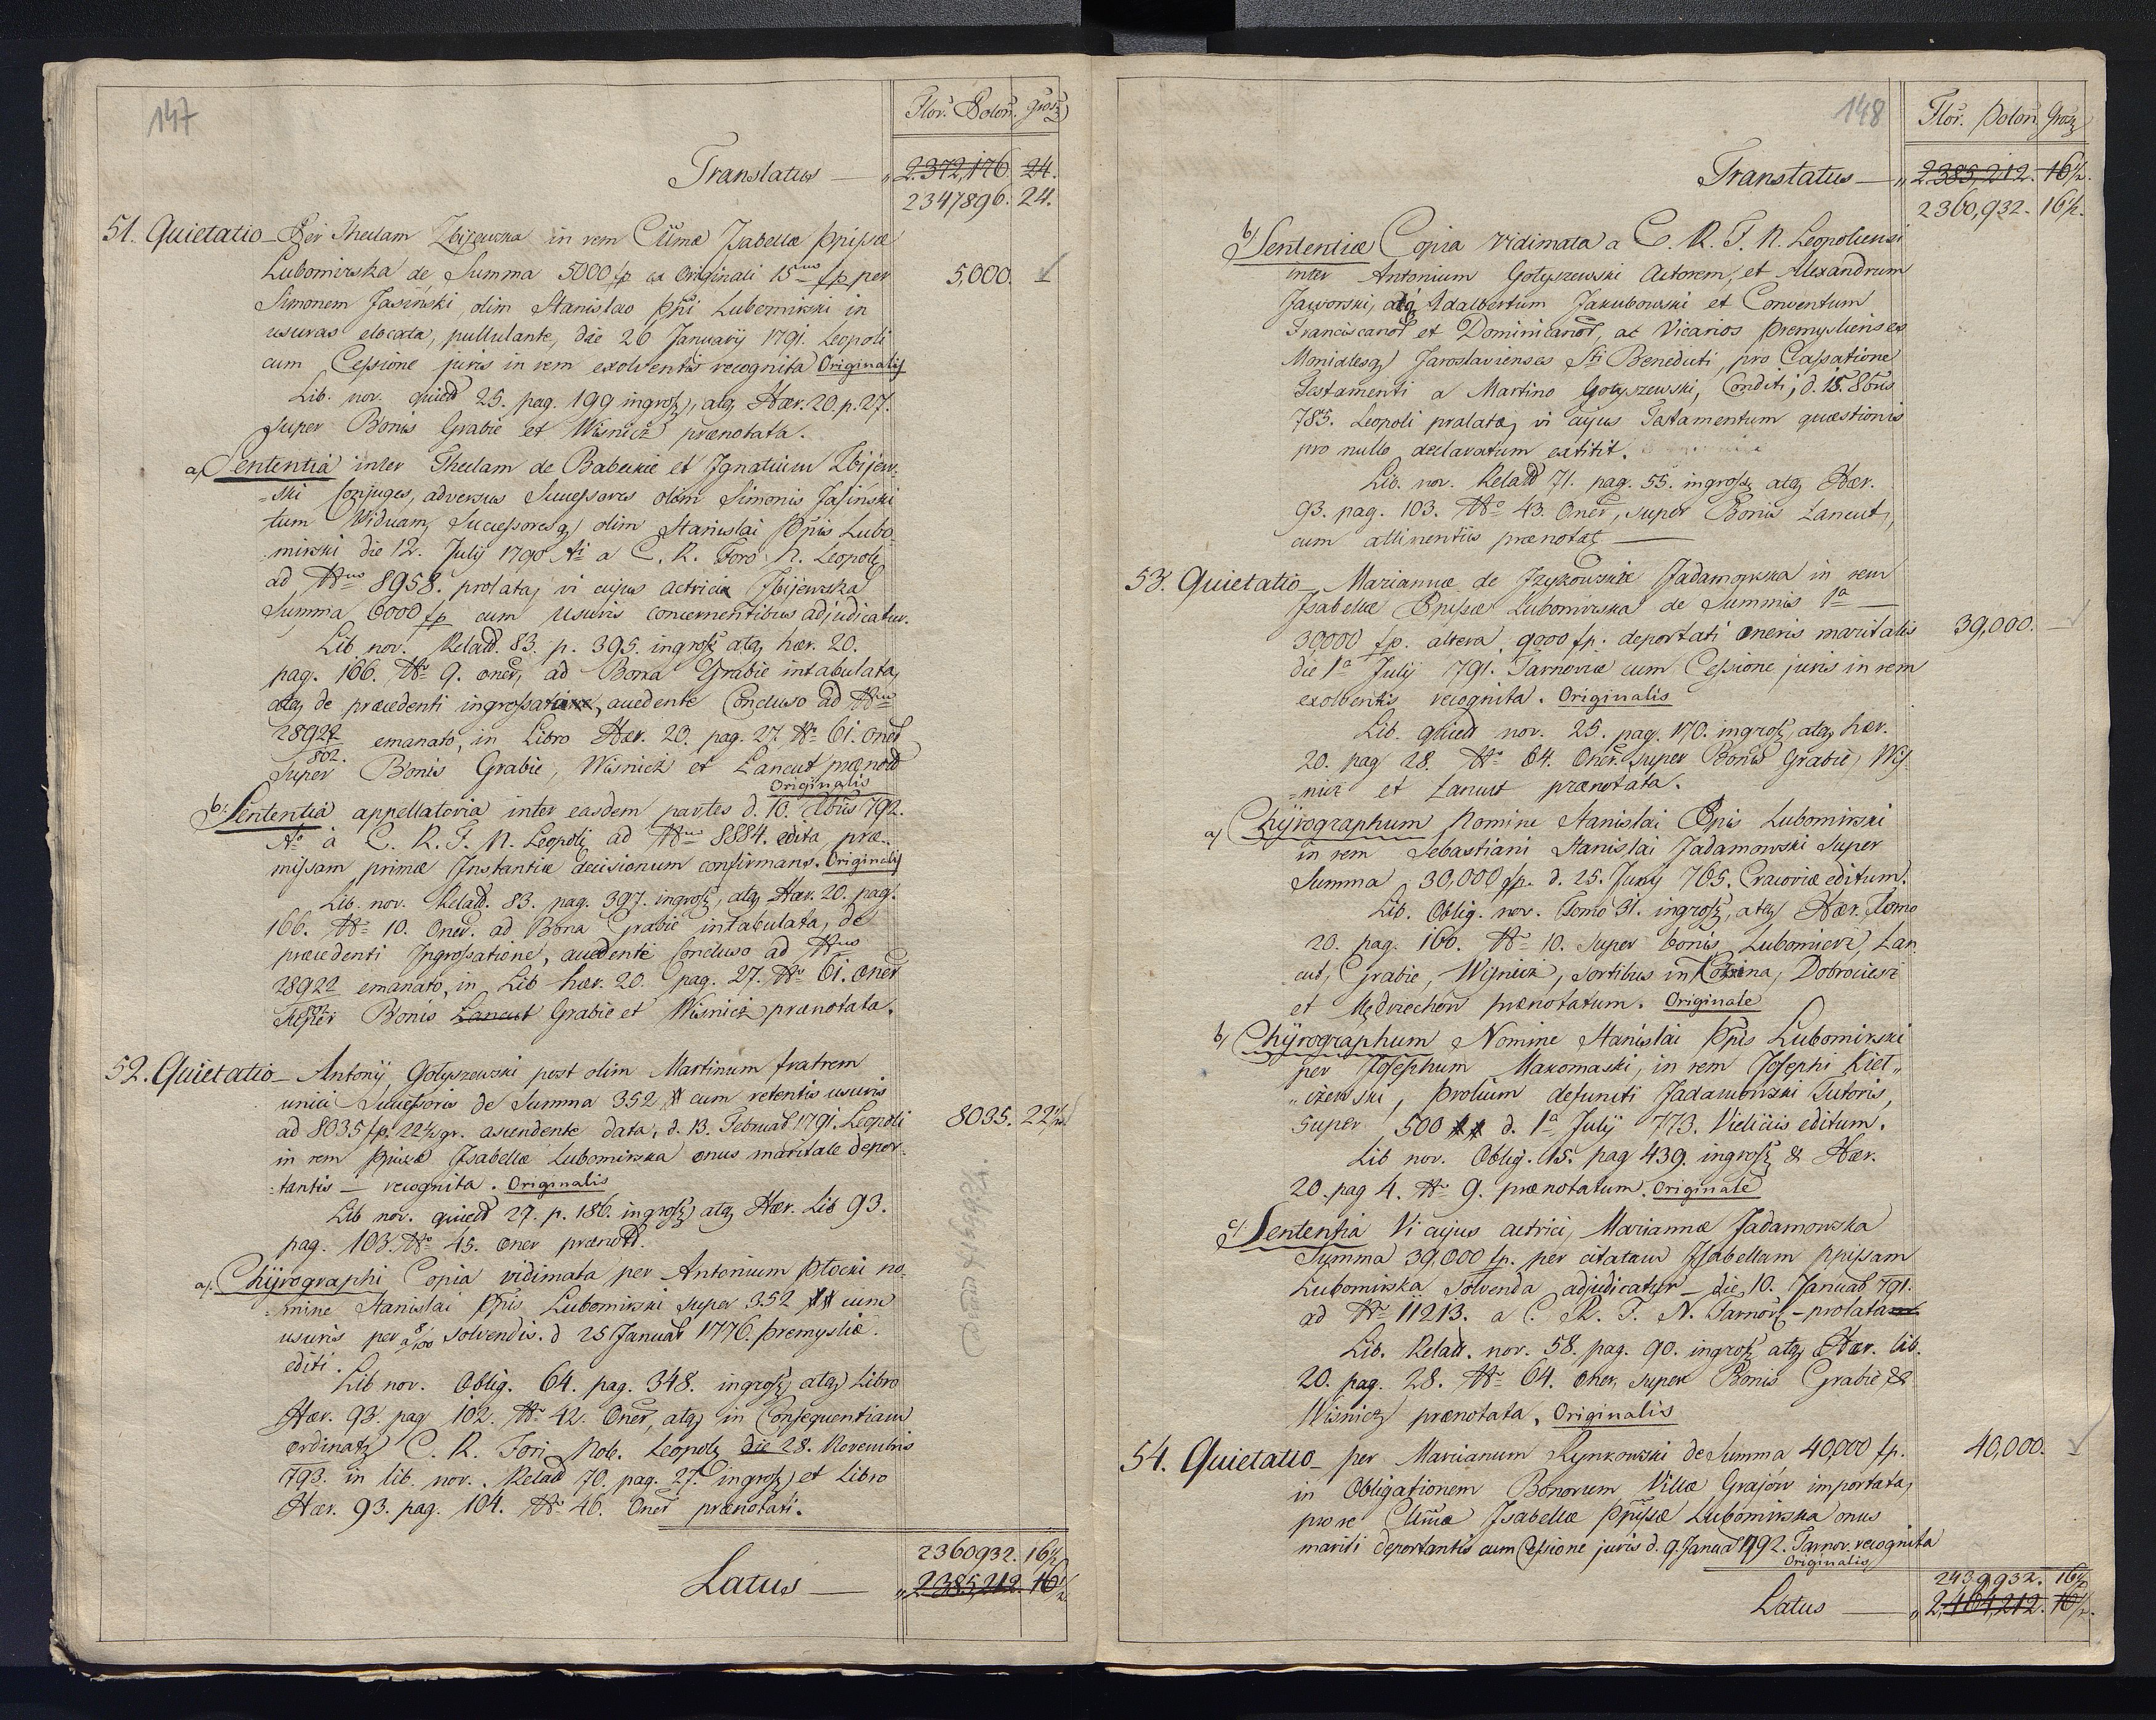 147
Flor. Polon. Grosz
Translatus — „ 2.372,176 24.
2347896. 24.
51. Quietatio — Per Theclam Zbijewska in rem Cllmæ Isabellæ Ppissæ
Lubomirska de Summa 5000 fp ex Originali 15 fp per 5,000.
Simonem Jasiński, olim Stanislao Ppi Lubomirski in
usuras elocata, pullulante, die 26 Januarij 1791. Leopoli
cum Cessione juris in rem exolventis recognita Originalis
Lib. nov. quiett 25. pag. 199 ingross, atq Hær. 20. p. 27.
super Bonis Grabie et Wisnicz prænotata.
a) Sententia inter Theclam de Babeckie et Ignatium Zbijew-
-ski Conjuges, adversus Successores olim Simonis Jasiński
tum Viduam, Successoresq olim Stanislai Ppis Lubo-
-mirski die 12. Julij 1790 Ai a C. R. Foro N. Leopoli
ad Nrum 8958. prolata, vi cujus actricia Zbijewska
Summa 6000 fp cum usuris concernentibus adjudicatur.
Lib nov. Relatt. 83. p. 395. ingross atq hær. 20.
pag. 166. Nr 9. oner, ad Bona Grabie intabulata,
atq de præcedenti ingrossatione, accedente Concluso ad Nrum
28922/802. emanato, in Libro Hær. 20. pag. 27. Nr 61. oner
super Bonis Grabie, Wisnicz et Lancut prænott
Originalis
b) Sententia appellatoria inter easdem partes d. 10. Xbris 792.
Ao à C. R. F. N. Leopoli ad Nrum 8884. edita præ-
missam primæ Instantiæ decisionum confirmans. Originalis
Lib. nov. Relatt. 83. pag. 397. ingross, atq Hær. 20. pag.
166. Nr 10. Oner. ad Bona Grabie intabulata, de
præcedenti Ingrossatione, accedente Concluso ad Nrum
28922/802 emanato, in Lib hær. 20. pag. 27. Nr 61. oner
super Bonis Lancut Grabie et Wisnicz prænotata.
52. Quietatio — Antonij Gołyszewski post olim Martinum fratrem
unici Successoris de Summa 352 # cum retentis usuris
ad 8035 fp. 22½ gr. ascendente data, d. 13. Februar 1791. Leopoli 8035. 22½
in rem Ppissæ Isabellæ Lubomirska onus maritale depor-
-tantis — recognita. Originalis
Lib nov. quiett 27. p. 186. ingross, atq Hær. Lib 93.
pag. 103. Nr 45. oner prænott.
a). Chyrographi Copia vidimata per Antonium Płocki no-
-mine Stanislai Ppis Lubomirski super 352 ## cum
usuris per a 8/100 solvendis. d 25 Januar 1776. Premysliæ.
editi.
Lib nov. Oblig. 64. pag. 348. ingross, atq Libro
Hær. 93. pag 102. Nr 42. Oner, atq in Consequentiam
ordinat C. R. Fori Nob. Leopol die 28. Novembris
793. in lib. nov. Relatt 70. pag. 27. ingross, et Libro
Hær. 93. pag. 104. Nr 46. Oner prænotati.
2360932. 16½
Latus — „ 2.385,212. 16½
148
Flor. Polon. Grosz
Translatus — „ 2.385,212. 16½.
2360,932. 16½.
b) Sententiæ Copia vidimata a C. R. F. N. Leopoliensi
inter Antonium Gołyszewski Actorem, et Alexandrum
Jaworski, atq Adalbertum Jakubowski et Conventum
Franciscanor et Dominicanor, ac Vicarios Premyslienses
Monialesq Jaroslavienses Sti Benedicti, pro Cassatione
Testamenti a Martino Gołyszewski, Conditi, d. 15. 8bris
785. Leopoli prolata, vi cujus Testamentum quæstionis
pro nullo declaratum extitit.
Lib. nov. Relatt 71. pag. 55. ingross, atq Hær.
93. pag. 103. Nr 43. Oner, super Bonis Lancut,
cum attinentiis prænotat —
53. Quietatio — Mariannæ de Jzykowskie Jadamowska in rem
Isabellæ Ppissæ Lubomirska de Summis 1a —
30,000 fp. altera 9000 fp. deportati oneris maritalis 39,000. —
die 1a Julij 791. Tarnoviæ cum Cessione juris in rem
exolventis recognita. Originalis
Lib. quiett nov. 25. pag. 170. ingross, atq hær.
20. pag 28. Nr 64. Oner. super Bonis Grabie, Wis-
-nicz et Lancut prænotata.
a) Chyrographum Nomine Stanislai Ppis Lubomirski
in rem Sebastiani Stanislai Jadamowski super
Summa 30,000 fp. d. 25. Junij 765. Cracoviæ editum.
Lib. Oblig. nov. Tomo 31. ingross, atq Hær. Tomo
20. pag. 166. Nr 10. super bonis Lubomierz, Lan-
cut, Grabie, Wisnicz, sortibus in Kozina, Dobrociesz
et Mędrzechow prænotatum. Originale
b) Chyrographum Nomine Stanislai Ppis Lubomirski
per Josephum Makomaski, in rem Josephi Kieł„
„czewski, Prolium defuncti Jadamowski Tutoris,
super 500 ## d. 1a Julij 773. Vieliciis editum.
Lib nov. Oblig. 15. pag 439. ingross & Hær.
20. pag 4. Nr 9. prænotatum. Originale
c) Sententia Vi cujus actrici, Mariannæ Jadamowska
Summa 39,000 fp. per citatam Isabellam Ppissam
Lubomirska solvenda adjudicatur — die 10. Januar 791.
ad Nr 11213. a C. R. F. N. Tarnov — prolata
Lib. Relatt. nov. 58. pag. 90. ingross, atq Hær. lib.
20. pag. 28. Nr 64. oner, super Bonis Grabie &
Wisnicz prænotata, Originalis
54. Quietatio — per Marcianum Rynkowski de Summa 40,000 fp. 40,000.
in Obligationem Bonorum Villæ Grajów importata,
pro re Cllmæ Isabellæ Ppissæ Lubomirska onus
mariti deportantis cum Cessione juris d. 9. Januar 1792. Tarnov. recognita
Originalis
2439932. 16½
Latus — „ 2,464,212. 16½.